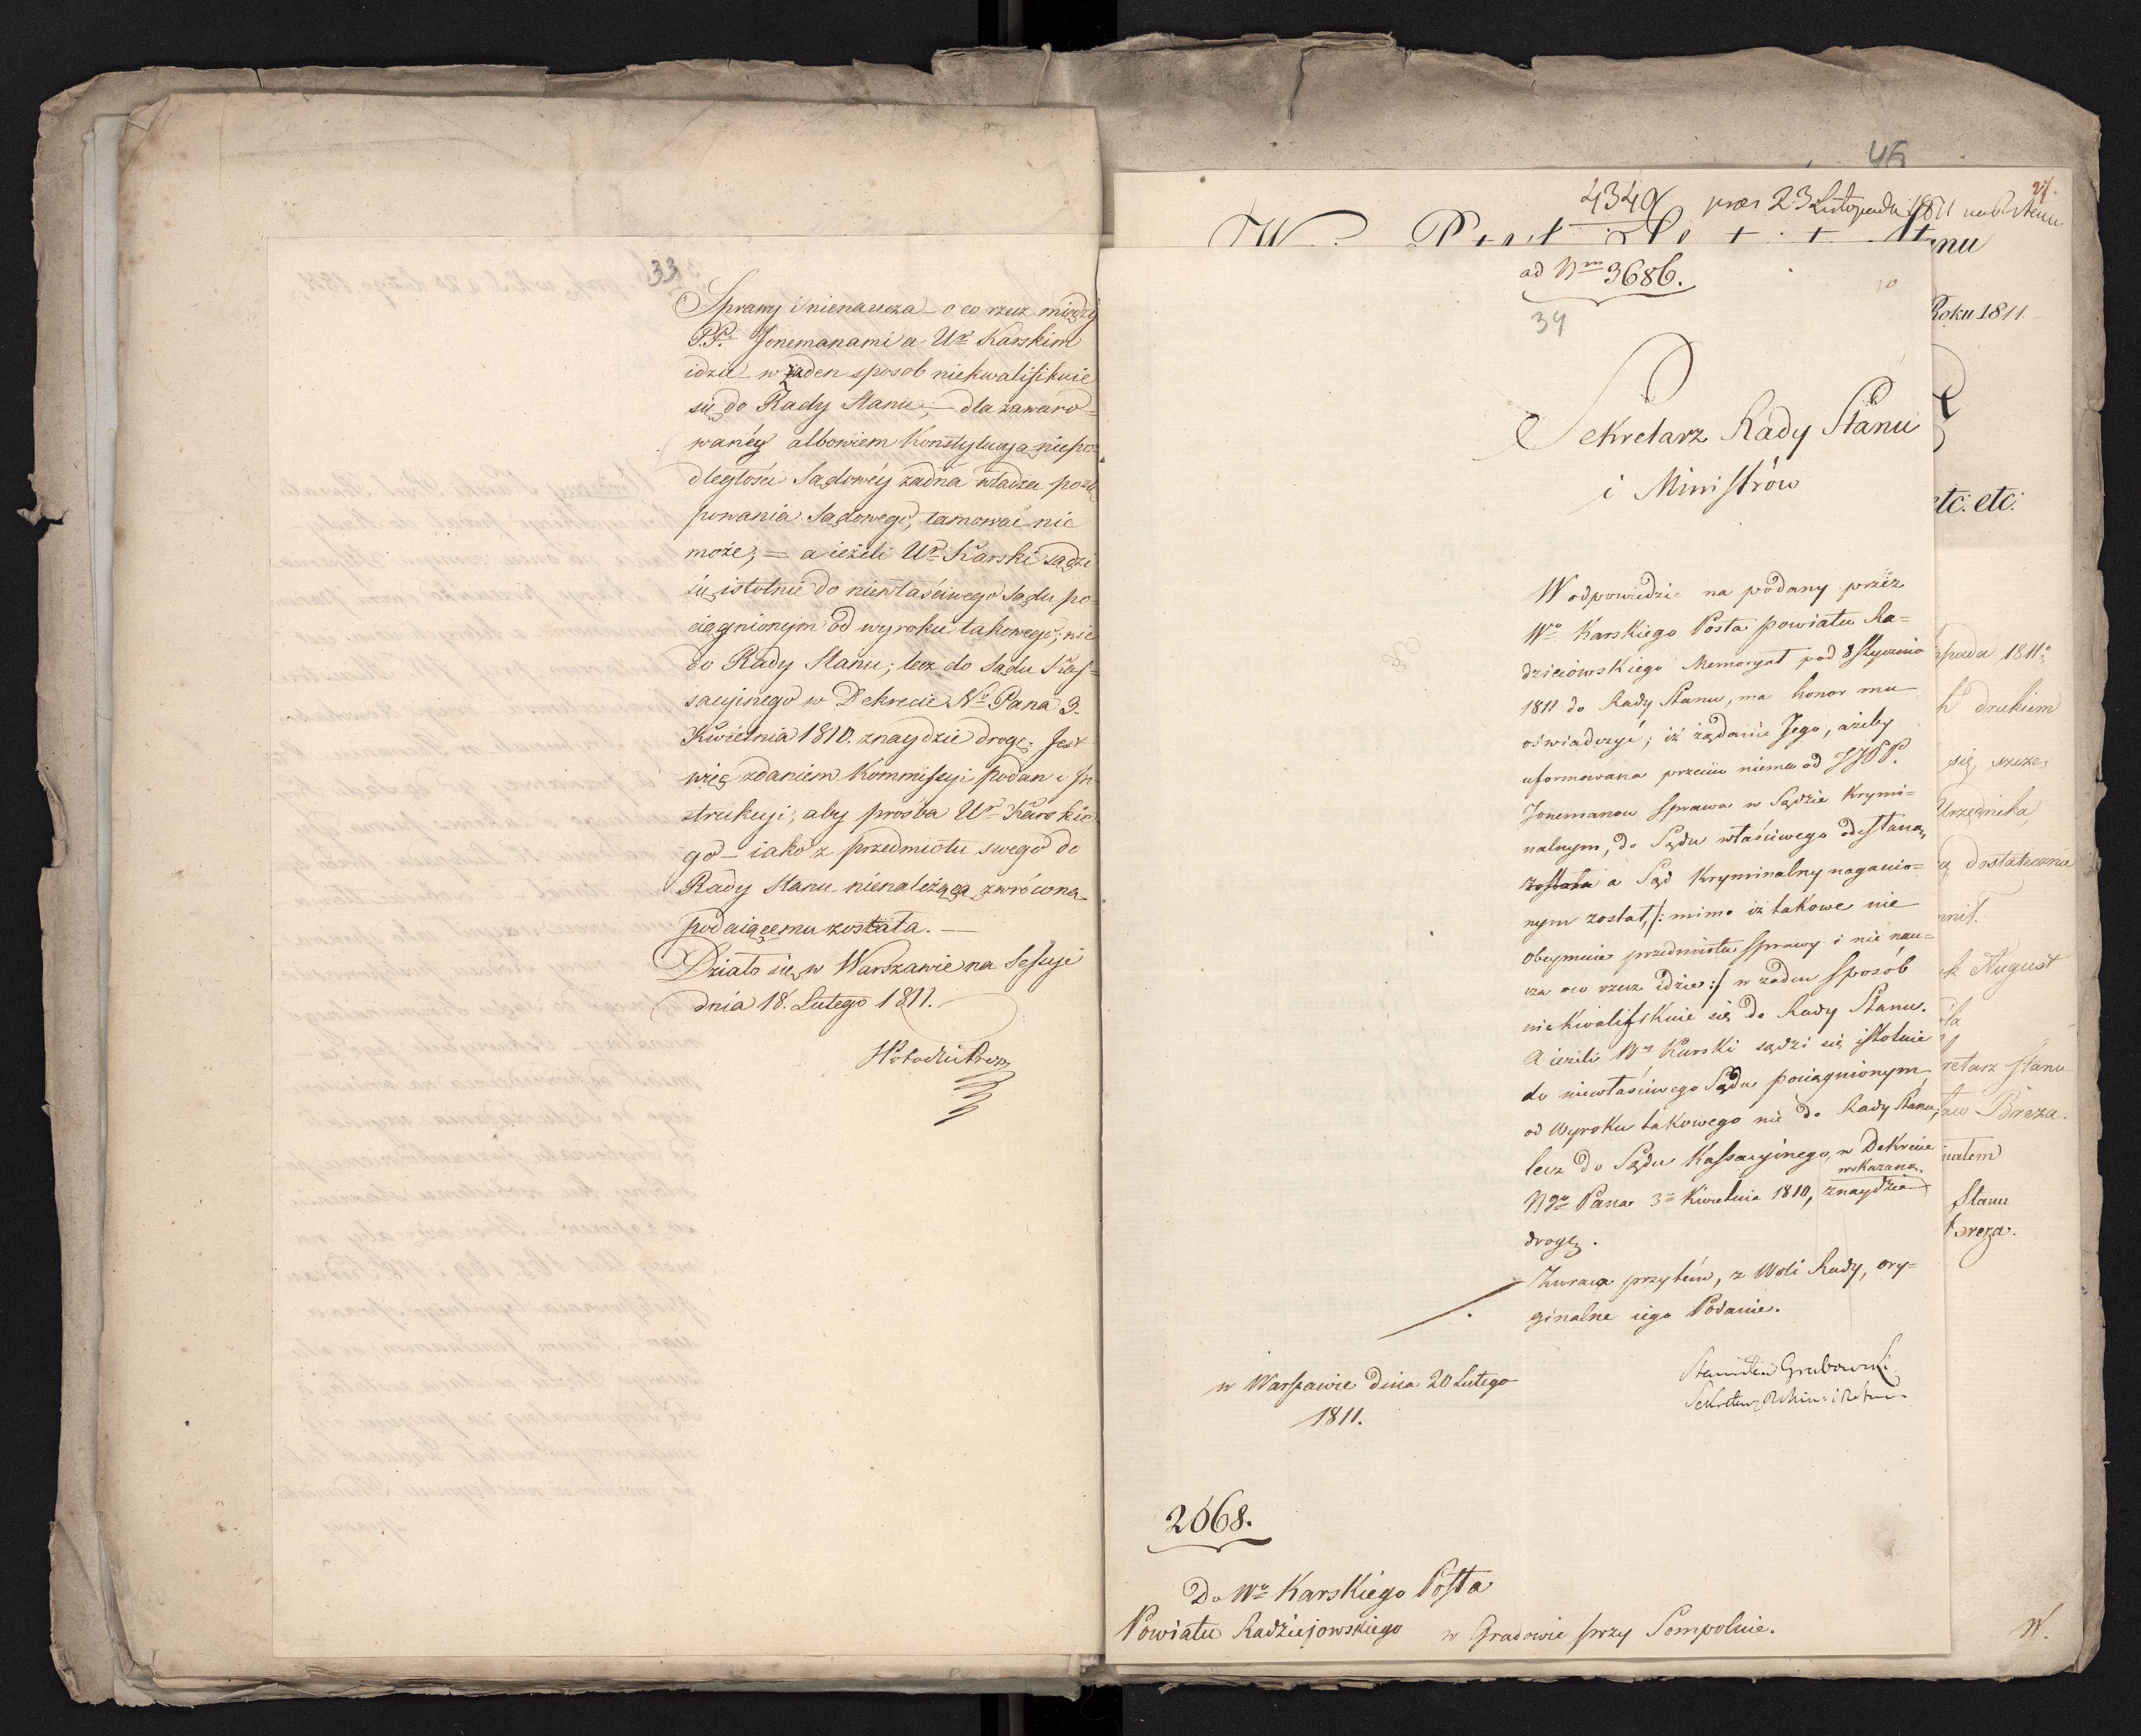 33
Sprawy i nienaucza – o co rzecz między
P.P. Jonemanami a Ur Karskim
idzie – w żaden sposob niekwalifikuie
się do Rady Stanu; – dla zawaro-
wanéy albowiem Konstytucyą niepo-
dległości Sądowéy żadna władza postę
powania Sądowego, tamować nie
może; = a ieżeli Ur Karski sądzi
się istotnie do niewłaściwego Sądu po-
ciągnionym od wyroku takowego; nie
do Rady Stanu; lecz do Sądu Kas-
sacyinego w Dekrecie No Pana 3.
Kwietnia 1810. znaydzie drogę. Jest
więc zdaniem Kommissyi Podan i In
strukcyi; aby prośba Ur Karskie
go – iako z przedmiotu swego do
Rady Stanu nienależąca, zwrócona
podaiącemu została. –
Działo się w Warszawie na Sessyi
dnia 18. Lutego 1811.
46
27.
4349 præs 23 Listopada 1811
Stanu
Roku 1811.
etc: etc:
pada 1811o
drukiem
się,
Urzędnika,
dostatecznie
August
retarz stanu
Breza.
Stanu
Breza.
W.
ad Nrm 3686.
34
Sekretarz Rady Stanu
i Ministrów
W odpowiedzi na podany przez
Wo Karskiego Posła powiatu Ra=
dzieiowskiego Memoryał pod 8 Stycznia
1811 do Rady Stanu, ma honor mu
oświadczyć; iż żądanie Jego, ażeby
uformowana przeciw niemu od JJPP.
Jonemanow sprawa w Sądzie Krymi=
nalnym, do Sądu właściwego odesłaną,
została a Sąd Kryminalny naganio=
nym został, /: mimo iż takowe nie
obeymuie przedmiotu sprawy i nie nau=
cza oco rzecz idzie :/ w żaden sposób
niekwalifikuie się do Rady Stanu.
A ieżeli Wy Karski sądzi się istotnie
do niewłaściwego Sądu pociągnionym,
od Wyroku takowego nie do Rady Stanu,
lecz do Sądu Kassacyinego, w Dekrecie
wskazaną
Ngo Pana 3o Kwietnia 1810, znaydzie
drogę.
Zwraca przytém, z Woli Rady, ory=
ginalne iego Podanie.
w Warszawie dnia 20 Lutego
1811.
Stanisław Grabowski
2068.
Do Wo Karskiego Posła
Powiatu Radziejowskiego w Gradowie przy Sompolnie.